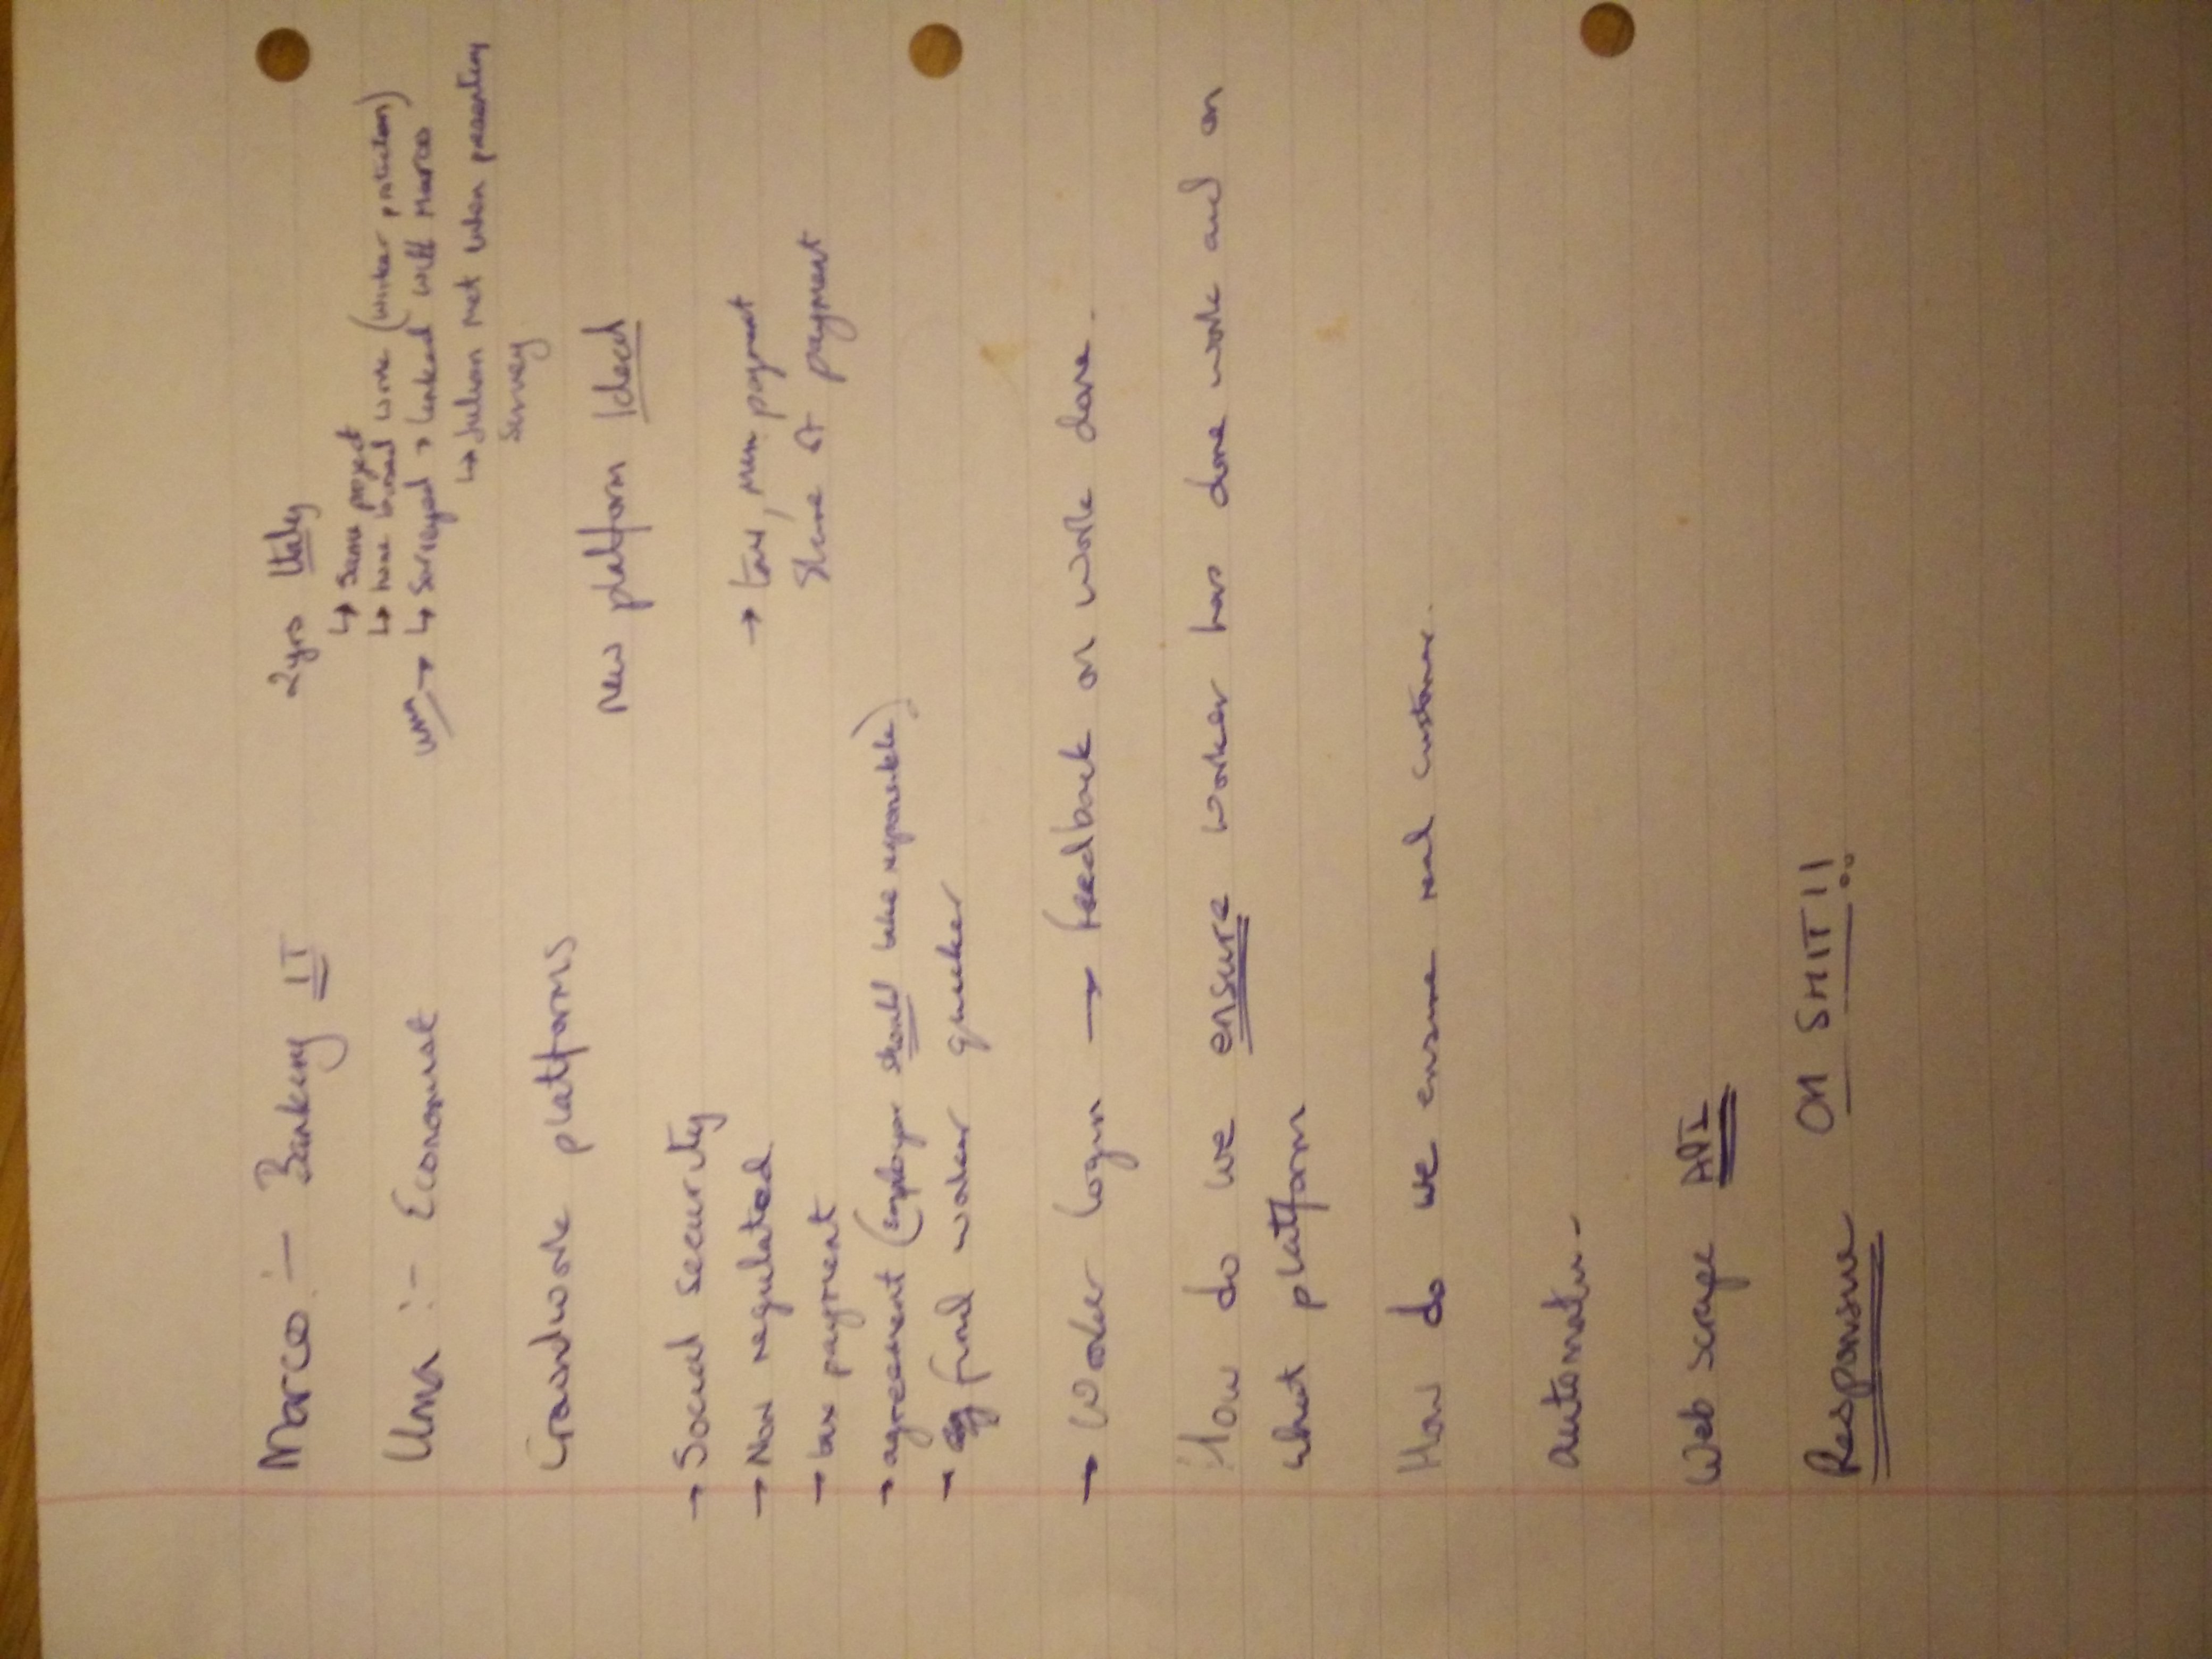 Marco :- Banking IT
2yrs Italy
↳ Same project
↳ home based work (worker protection)
Uma → ↳ Surveyed → Linked with Marco
↳ Julian met when presenting
Survey
Uma :- Economist
Crowdwork platforms
New platform Ideal
→ Social security
→ Non regulated
→ tax payment
→ agreement (employer should take responsible)
→ find worker quicker
→ tax, min payment
Share of payment
→ Worker login → feedback on work done.
How do we ensure worker has done work and on
what platform
How do we ensure real customer.
automate.
Web scrape API
Responsive OH SHIT!!